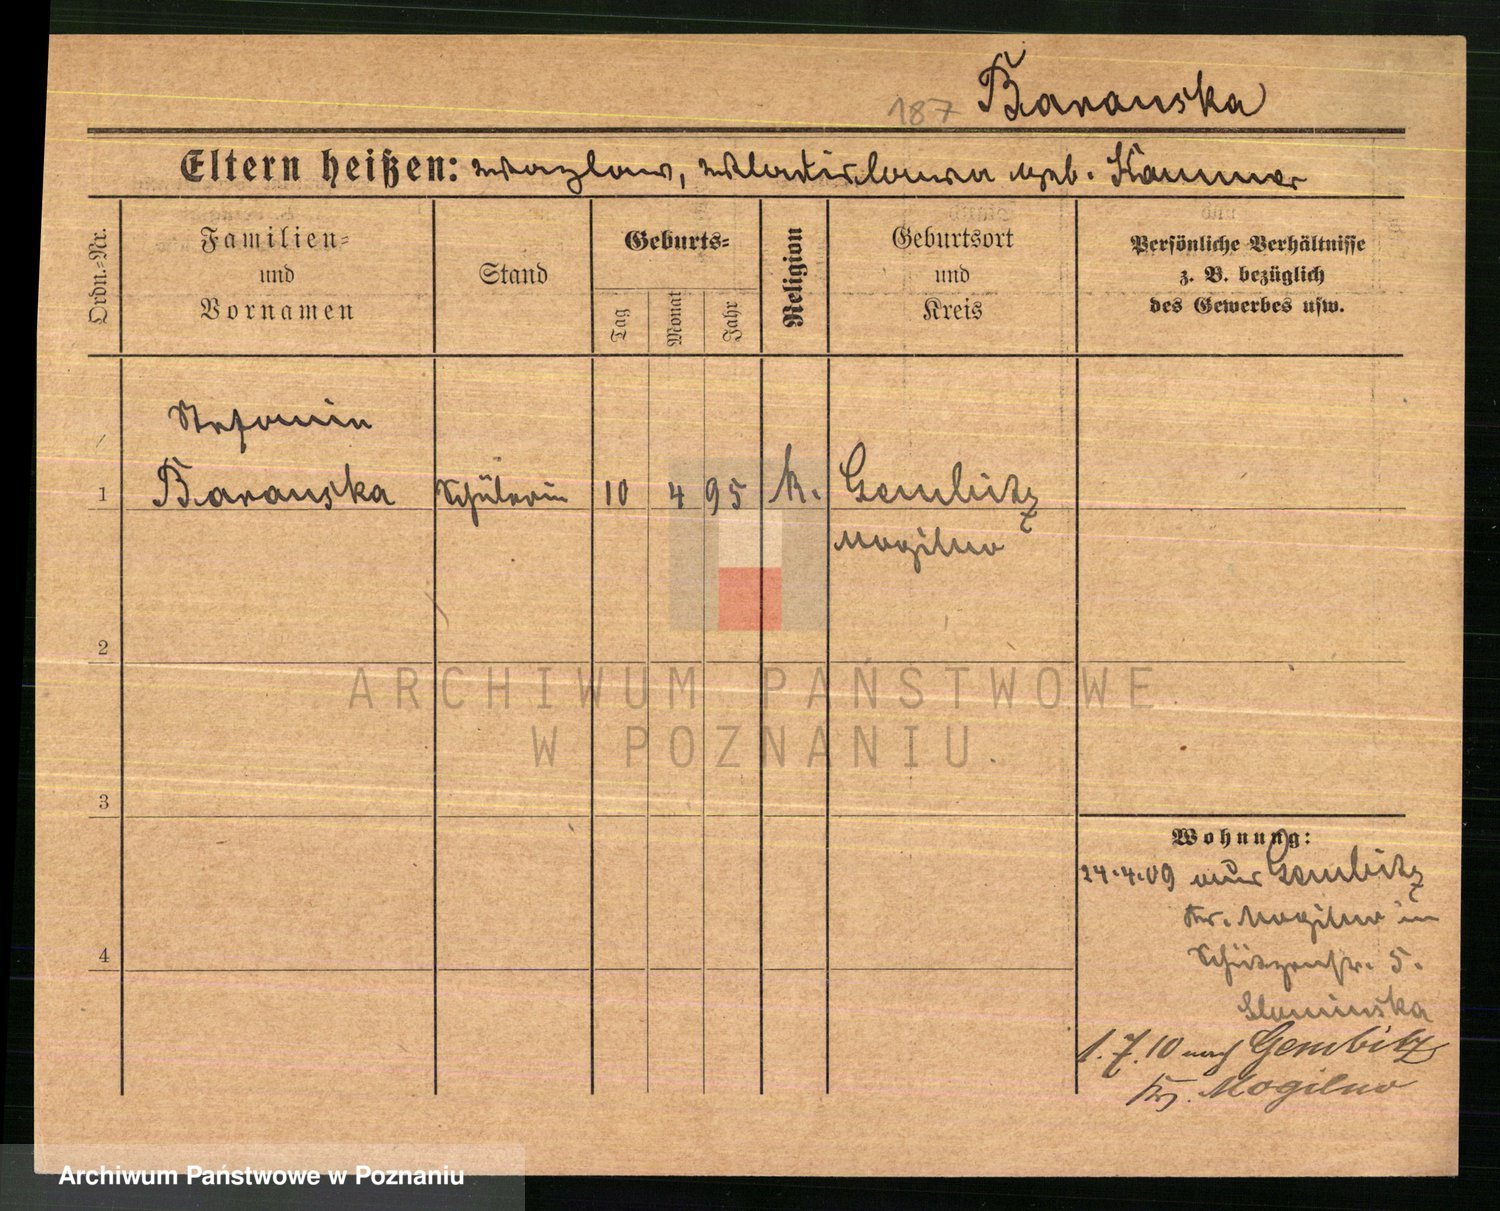 187 Baranska
Eltern heißen: Wazlaw, Wladislawa geb. Kammer
Ordn.-Nr.
Familien- und Vornamen
Stand
Geburts-
Tag
Monat
Jahr
Religion
Geburtsort und Kreis
Persönliche Verhältnisse
z. B. bezüglich
des Gewerbes usw.
Stefanie
1 Baranska Schülerin 10 4 95 k. Gembitz
Mogilno
2
ARCHIWUM PAŃSTWOWE
W POZNANIU
3
Wohnung:
24.4.09 aus Gembitz
Kr. Mogilno in
Schützenstr. 5.
4
Slominska
1.7.10 nach Gembitz
Kr. Mogilno
Archiwum Państwowe w Poznaniu